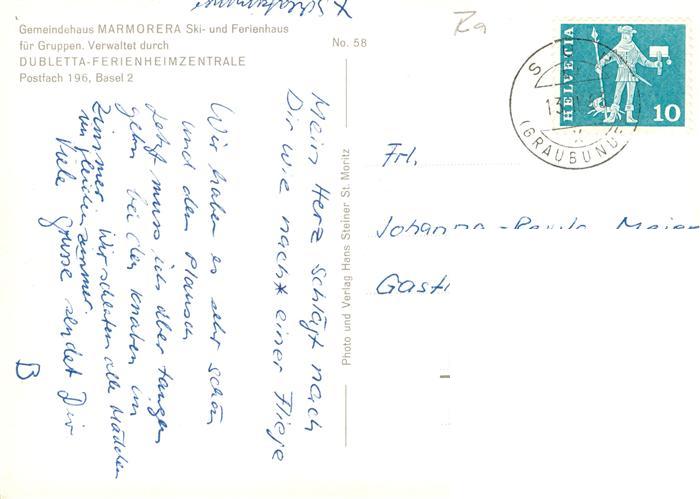 x Schlafzimmer
Gemeindehaus MARMORERA Ski- und Ferienhaus
für Gruppen. Verwaltet durch
DUBLETTA-FERIENHEIMZENTRALE
Postfach 196, Basel 2
No. 58
Ra
HELVETIA
10
S
13.
(GRAUBÜND
Mein Herz schlägt nach
Dir wie nach* einer Fliege
Wir haben es sehr schön
und den Plausch
Jetzt muss ich aber tanzen
gehn bei den Knaben im
Zimmer. Wir schlafen alle Mädchen
im gleichen zimmer
Viele Grüsse sendet Dir
B
Photo und Verlag Hans Steiner St. Moritz
Frl.
Johanna
Meier